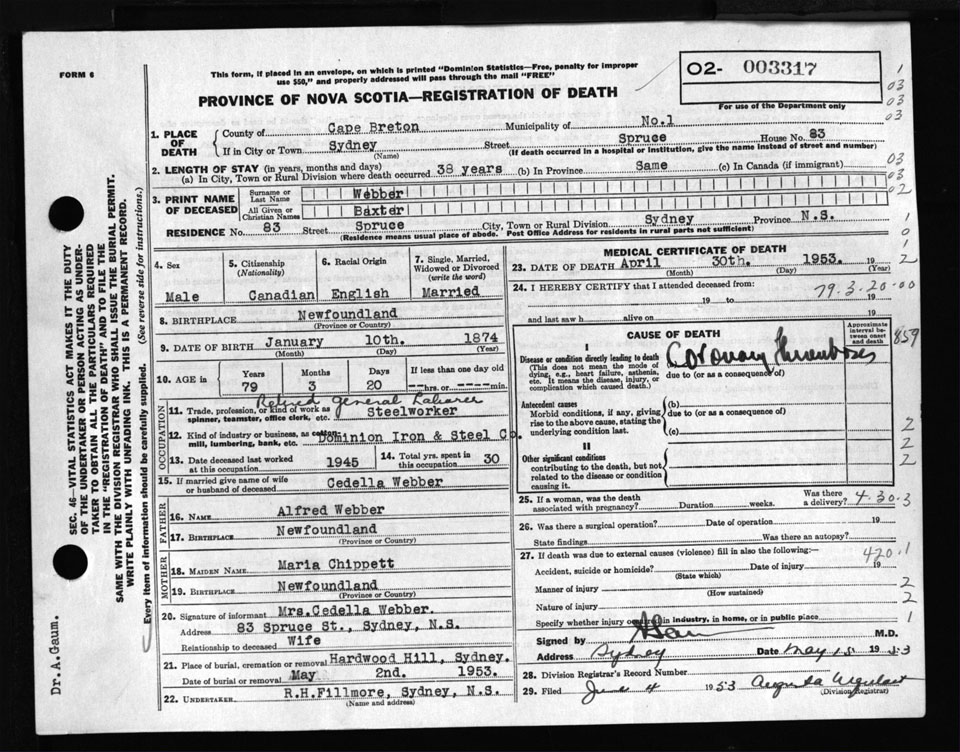 FORM 6
This form, if placed in an envelope, on which is printed "Dominion Statistics—Free, penalty for improper
use $50," and properly addressed will pass through the mail "FREE"
PROVINCE OF NOVA SCOTIA—REGISTRATION OF DEATH
02- 003317
For use of the Department only
1. PLACE OF DEATH
County of Cape Breton Municipality of No.1
If in City or Town Sydney Street Spruce House No. 83
(Name) (If death occurred in a hospital or institution, give the name instead of street and number)
2. LENGTH OF STAY (in years, months and days)
(a) In City, Town or Rural Division where death occurred 38 years (b) In Province Same (c) In Canada (if immigrant)
3. PRINT NAME OF DECEASED
Surname or Last Name Webber
All Given or Christian Names Baxter
RESIDENCE No. 83 Street Spruce City, Town or Rural Division Sydney Province N.S.
(Residence means usual place of abode. Post Office Address for residents in rural parts not sufficient)
4. Sex
Male
5. Citizenship (Nationality)
Canadian
6. Racial Origin
English
7. Single, Married, Widowed or Divorced (write the word)
Married
8. BIRTHPLACE Newfoundland
(Province or Country)
9. DATE OF BIRTH January 10th. 1874
(Month) (Day) (Year)
10. AGE in Years Months Days If less than one day old
79 3 20 ---hrs. or ----min.
Retired General Laborer
11. Trade, profession, or kind of work as spinner, teamster, office clerk, etc. Steelworker
OCCUPATION
12. Kind of industry or business, as cotton mill, lumbering, bank, etc. Dominion Iron & Steel Co.
13. Date deceased last worked at this occupation 1945
14. Total yrs. spent in this occupation 30
15. If married give name of wife or husband of deceased Cedella Webber
FATHER
16. NAME Alfred Webber
17. BIRTHPLACE Newfoundland
(Province or Country)
MOTHER
18. MAIDEN NAME Maria Chippett
19. BIRTHPLACE Newfoundland
(Province or Country)
20. Signature of informant Mrs.Cedella Webber.
Address 83 Spruce St., Sydney, N.S.
Relationship to deceased Wife
21. Place of burial, cremation or removal Hardwood Hill, Sydney.
Date of burial or removal May 2nd. 1953.
22. UNDERTAKER R.H.Fillmore, Sydney, N.S.
(Name and address)
MEDICAL CERTIFICATE OF DEATH
23. DATE OF DEATH April 30th. 1953. 19
(Month) (Day) (Year)
24. I HEREBY CERTIFY that I attended deceased from:
79.3.20.00
19 to 19
and last saw h alive on 19
CAUSE OF DEATH
Approximate interval between onset and death
859
I
Disease or condition directly leading to death
(This does not mean the mode of dying, e.g., heart failure, asthenia, etc. It means the disease, injury, or complication which caused death.)
Coronary Thrombosis
due to (or as a consequence of)
Antecedent causes
Morbid conditions, if any, giving rise to the above cause, stating the underlying condition last.
(b)
due to (or as a consequence of)
(c)
II
Other significant conditions
contributing to the death, but not related to the disease or condition causing it.
25. If a woman, was the death associated with pregnancy? Duration weeks. Was there a delivery?
4-30-3
26. Was there a surgical operation? Date of operation 19
State findings Was there an autopsy?
27. If death was due to external causes (violence) fill in also the following:
420.1
Accident, suicide or homicide? Date of injury 19
(State which)
Manner of injury
(How sustained)
Nature of injury
Specify whether injury occurred in industry, in home, or in public place
Signed by M.D.
Address Sydney Date May 1st 1953
28. Division Registrar's Record Number
29. Filed June 4 1953 Augusta
(Division Registrar)
SEC. 46—VITAL STATISTICS ACT MAKES IT THE DUTY
OF THE UNDERTAKER OR PERSON ACTING AS UNDER-
TAKER TO OBTAIN ALL THE PARTICULARS REQUIRED
IN THE "REGISTRATION OF DEATH" AND TO FILE THE
SAME WITH THE DIVISION REGISTRAR WHO SHALL ISSUE THE BURIAL PERMIT.
WRITE PLAINLY WITH UNFADING INK. THIS IS A PERMANENT RECORD.
Every item of information should be carefully supplied. (See reverse side for instructions.)
Dr.A.Gaum.
1
03
03
03
03
03
02
1
0
1
2
2
2
2
2
2
1